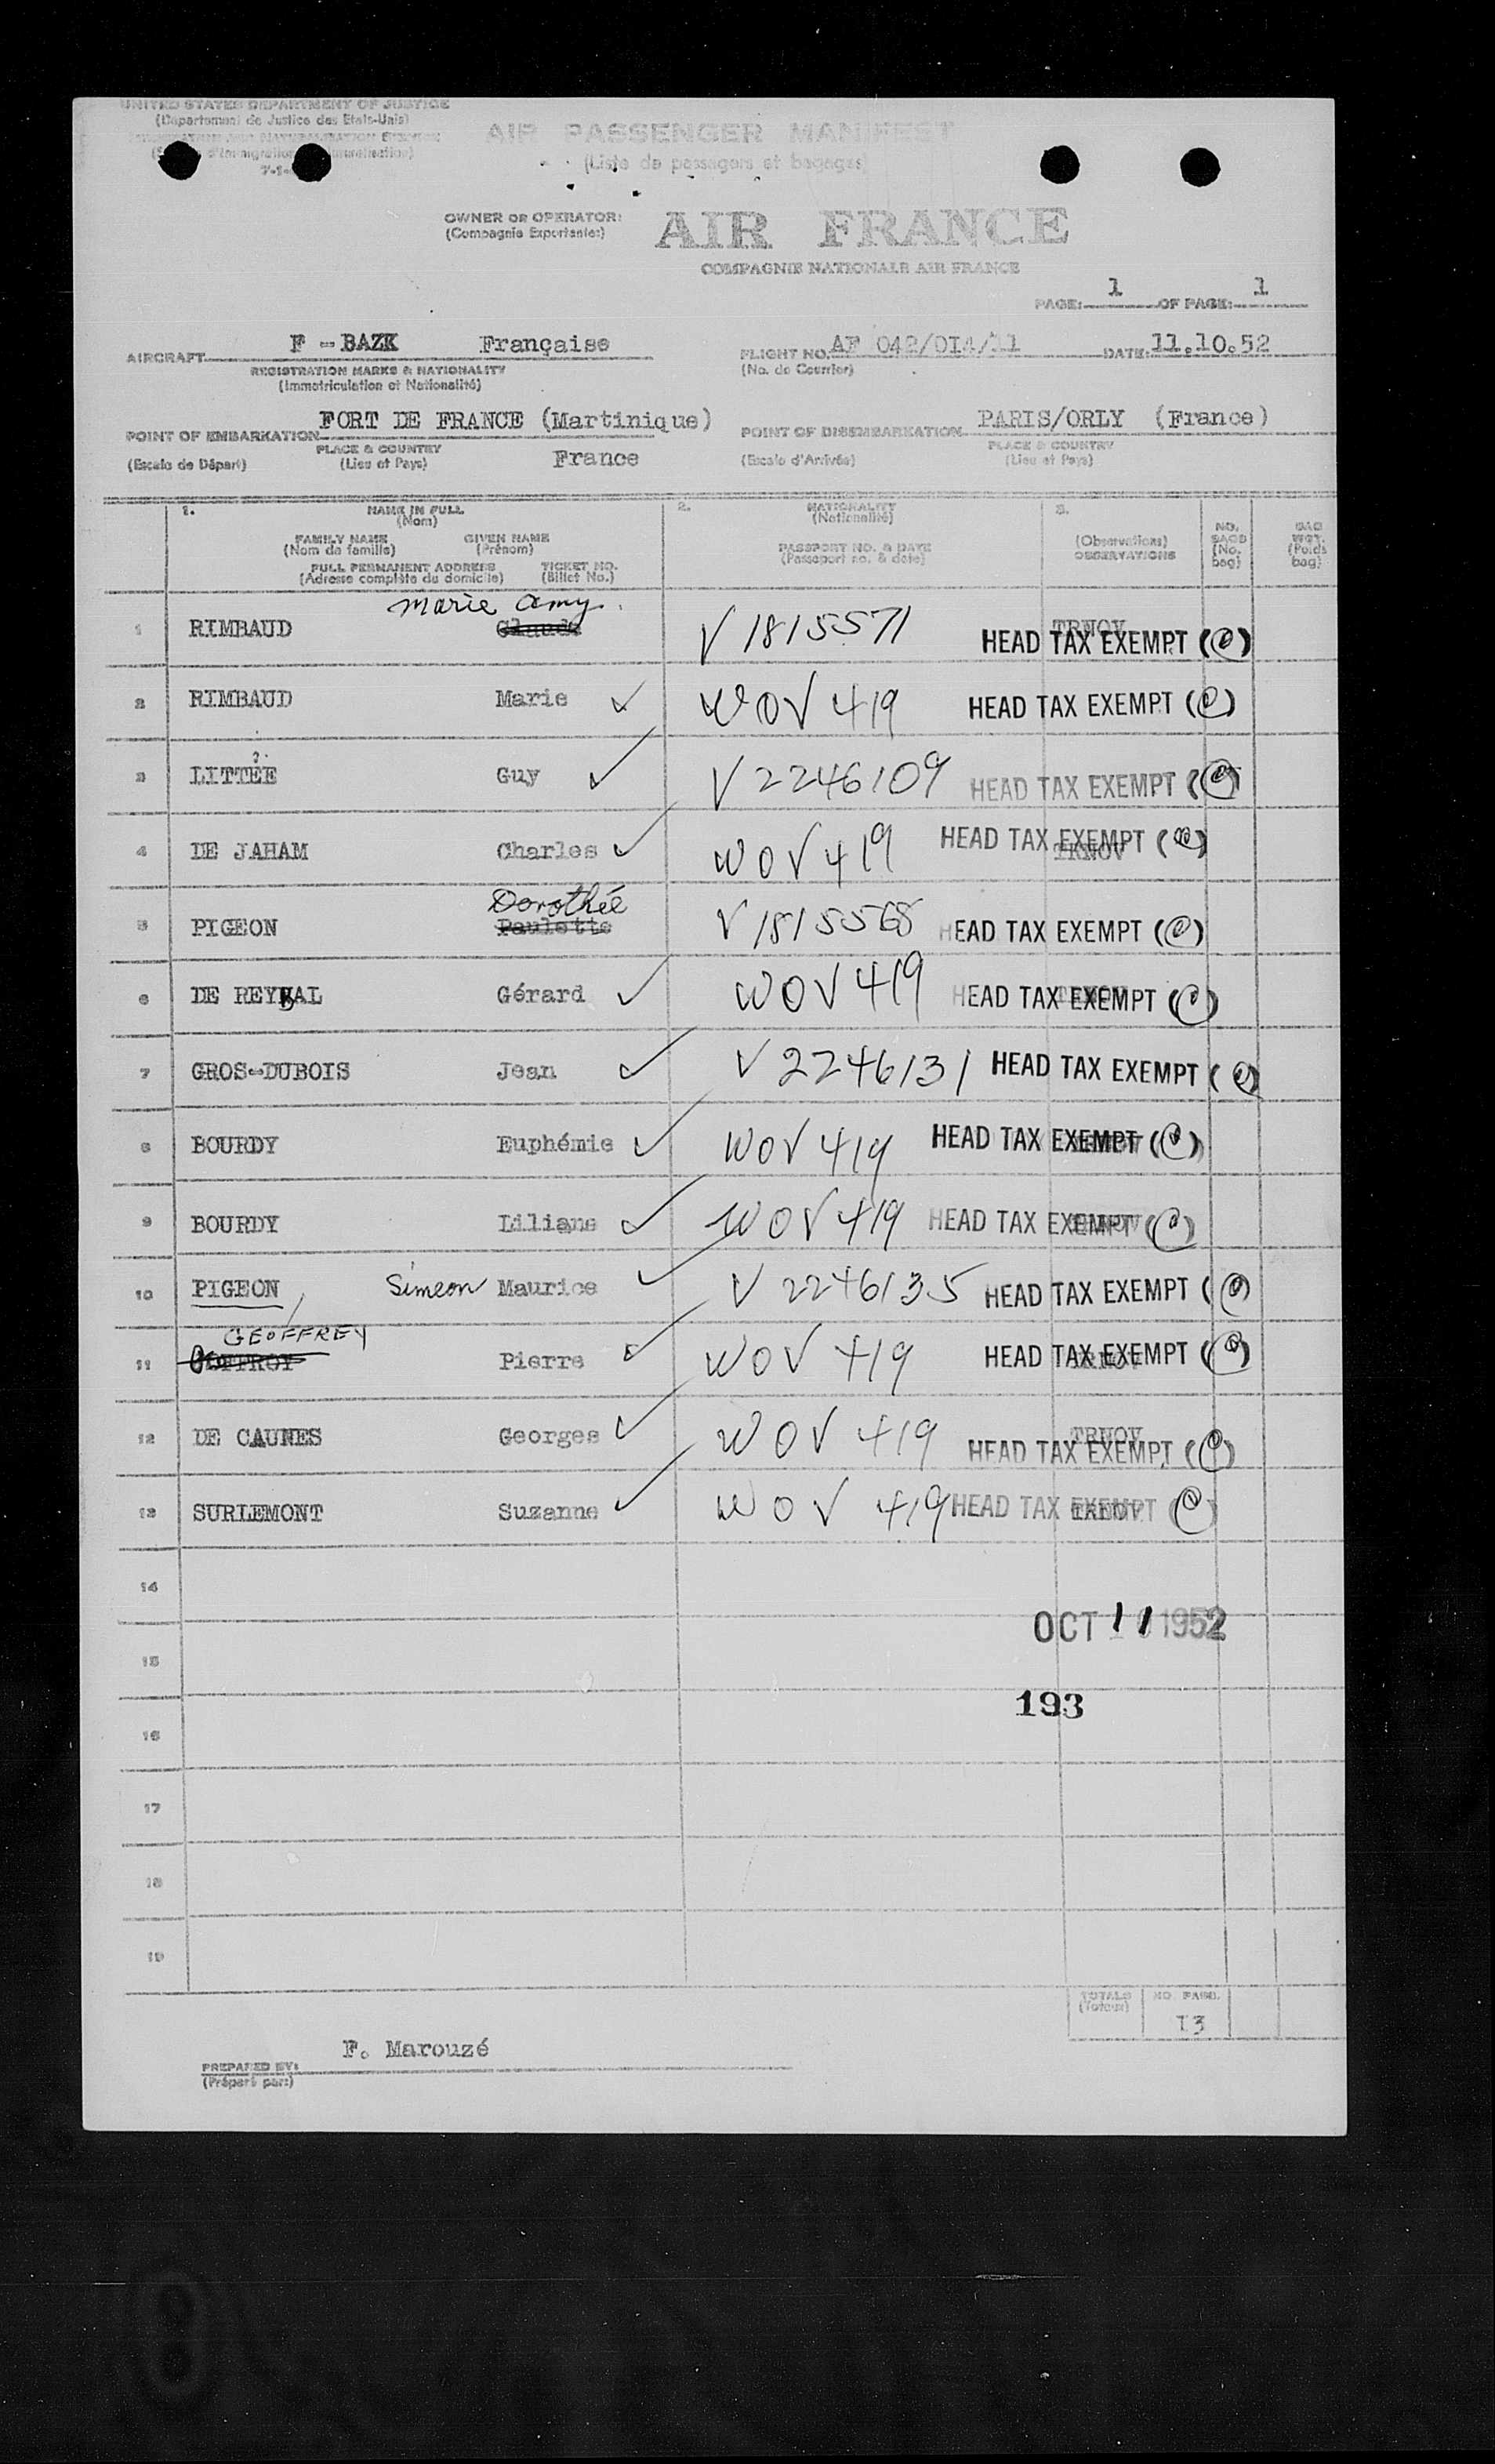 UNITED STATES DEPARTMENT OF JUSTICE
(Département de Justice des Etats-Unis)
AIR PASSENGER MANIFEST
(Liste de passagers et bagages)
7-1-
OWNER OR OPERATOR:
(Compagnie Exportante:)
AIR FRANCE
COMPAGNIE NATIONALE AIR FRANCE
PAGE: 1 OF PAGE: 1
AIRCRAFT F - BAZK Française
REGISTRATION MARKS & NATIONALITY
(Immatriculation et Nationalité)
FLIGHT NO. AF 042/OI4/11 DATE: 11.10.52
(No. de Courrier)
POINT OF EMBARKATION FORT DE FRANCE (Martinique)
PLACE & COUNTRY
(Escale de Départ) (Lieu et Pays) France
POINT OF DISEMBARKATION PARIS/ORLY (France)
PLACE & COUNTRY
(Escale d'Arrivée) (Lieu et Pays)
1. NAME IN FULL
(Nom)
FAMILY NAME GIVEN NAME
(Nom de famille) (Prénom)
FULL PERMANENT ADDRESS TICKET NO.
(Adresse complète du domicile) (Billet No.)
2. NATIONALITY
(Nationalité)
PASSPORT NO. & DATE
(Passeport no. & date)
3.
(Observations)
OBSERVATIONS
NO. BAGS
(No. bag)
BAG WGT.
(Poids bag)
Marie Amy.
1 RIMBAUD Claude V 1815571 TRNOV HEAD TAX EXEMPT
2 RIMBAUD Marie ✓ WOV 419 HEAD TAX EXEMPT
?
3 LITTÉE Guy ✓ V 2246109 HEAD TAX EXEMPT
4 DE JAHAM Charles ✓ WOV 419 HEAD TAX EXEMPT TRNOV
Dorothée
5 PIGEON Paulette V 1815568 HEAD TAX EXEMPT
6 DE REYNAL Gérard ✓ WOV 419 HEAD TAX EXEMPT
7 GROS-DUBOIS Jean ✓ V 2246131 HEAD TAX EXEMPT
8 BOURDY Euphémie ✓ WOV 419 HEAD TAX EXEMPT
9 BOURDY Liliane ✓ WOV 419 HEAD TAX EXEMPT
10 PIGEON Simeon Maurice ✓ V 2246135 HEAD TAX EXEMPT
GEOFFREY
11 GOFFROY Pierre ✓ WOV 419 HEAD TAX EXEMPT TRNOV
12 DE CAUNES Georges ✓ WOV 419 TRNOV HEAD TAX EXEMPT
13 SURLEMONT Suzanne ✓ WOV 419 HEAD TAX EXEMPT TRNOV
14
OCT 11 1952
15
193
16
17
18
19
TOTALS
(Totaux)
NO. PASS.
I3
F. Marouzé
PREPARED BY:
(Préparé par:)